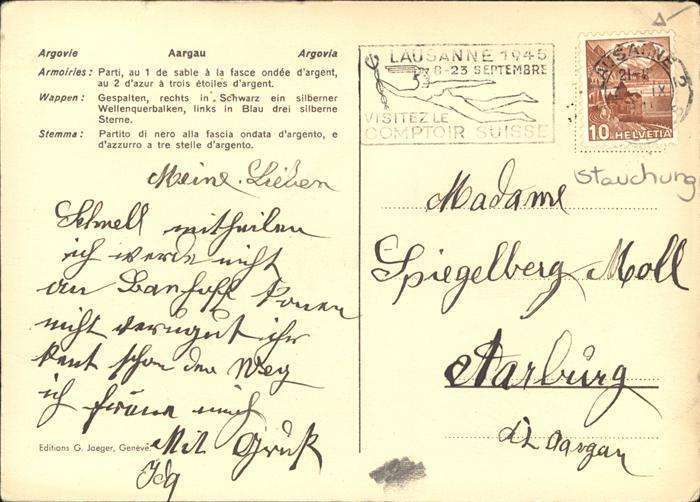 Argovie Aargau Argovia
Armoiries: Parti, au 1 de sable à la fasce ondée d'argent,
au 2 d'azur à trois étoiles d'argent.
Wappen: Gespalten, rechts in Schwarz ein silberner
Wellenquerbalken, links in Blau drei silberne
Sterne.
Stemma: Partito di nero alla fascia ondata d'argento, e
d'azzurro a tre stelle d'argento.
Meine Lieben
Schnell mittheilen
ich werde nicht
an Banhoff
nicht ihr
kent schon den Weg
ich freue mich
Mit Gruß
Editions G. Jaeger, Genève.
LAUSANNE 1945
8-23 SEPTEMBRE
VISITEZ LE
COMPTOIR SUISSE
LAUSANNE 3
10 HELVETIA
Stauchung
Madame
Spiegelberg Moll
Aarburg
Aargau